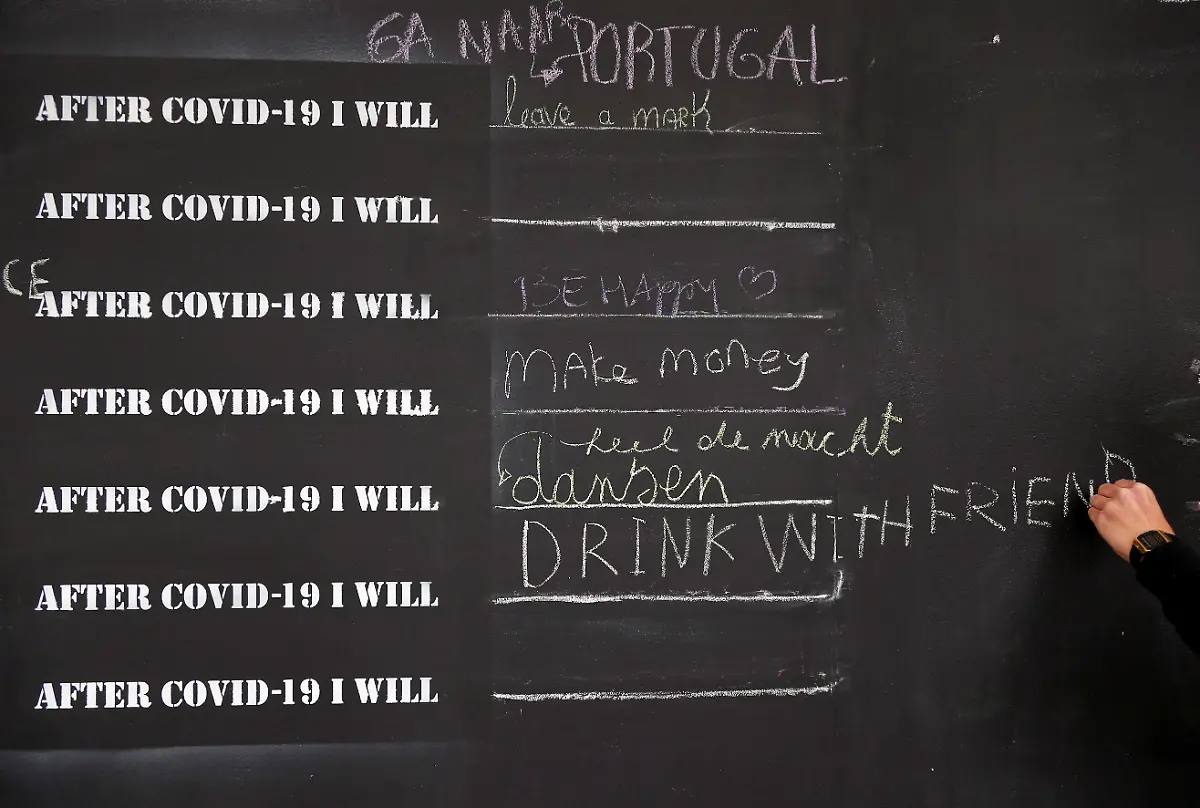 GA NAAR PORTUGAL
AFTER COVID-19 I WILL leave a mark
AFTER COVID-19 I WILL
CE
AFTER COVID-19 I WILL BE HAppy ♡
AFTER COVID-19 I WILL Make money
heel de nacht
AFTER COVID-19 I WILL dansen
AFTER COVID-19 I WILL DRINK WITH FRIEND
AFTER COVID-19 I WILL